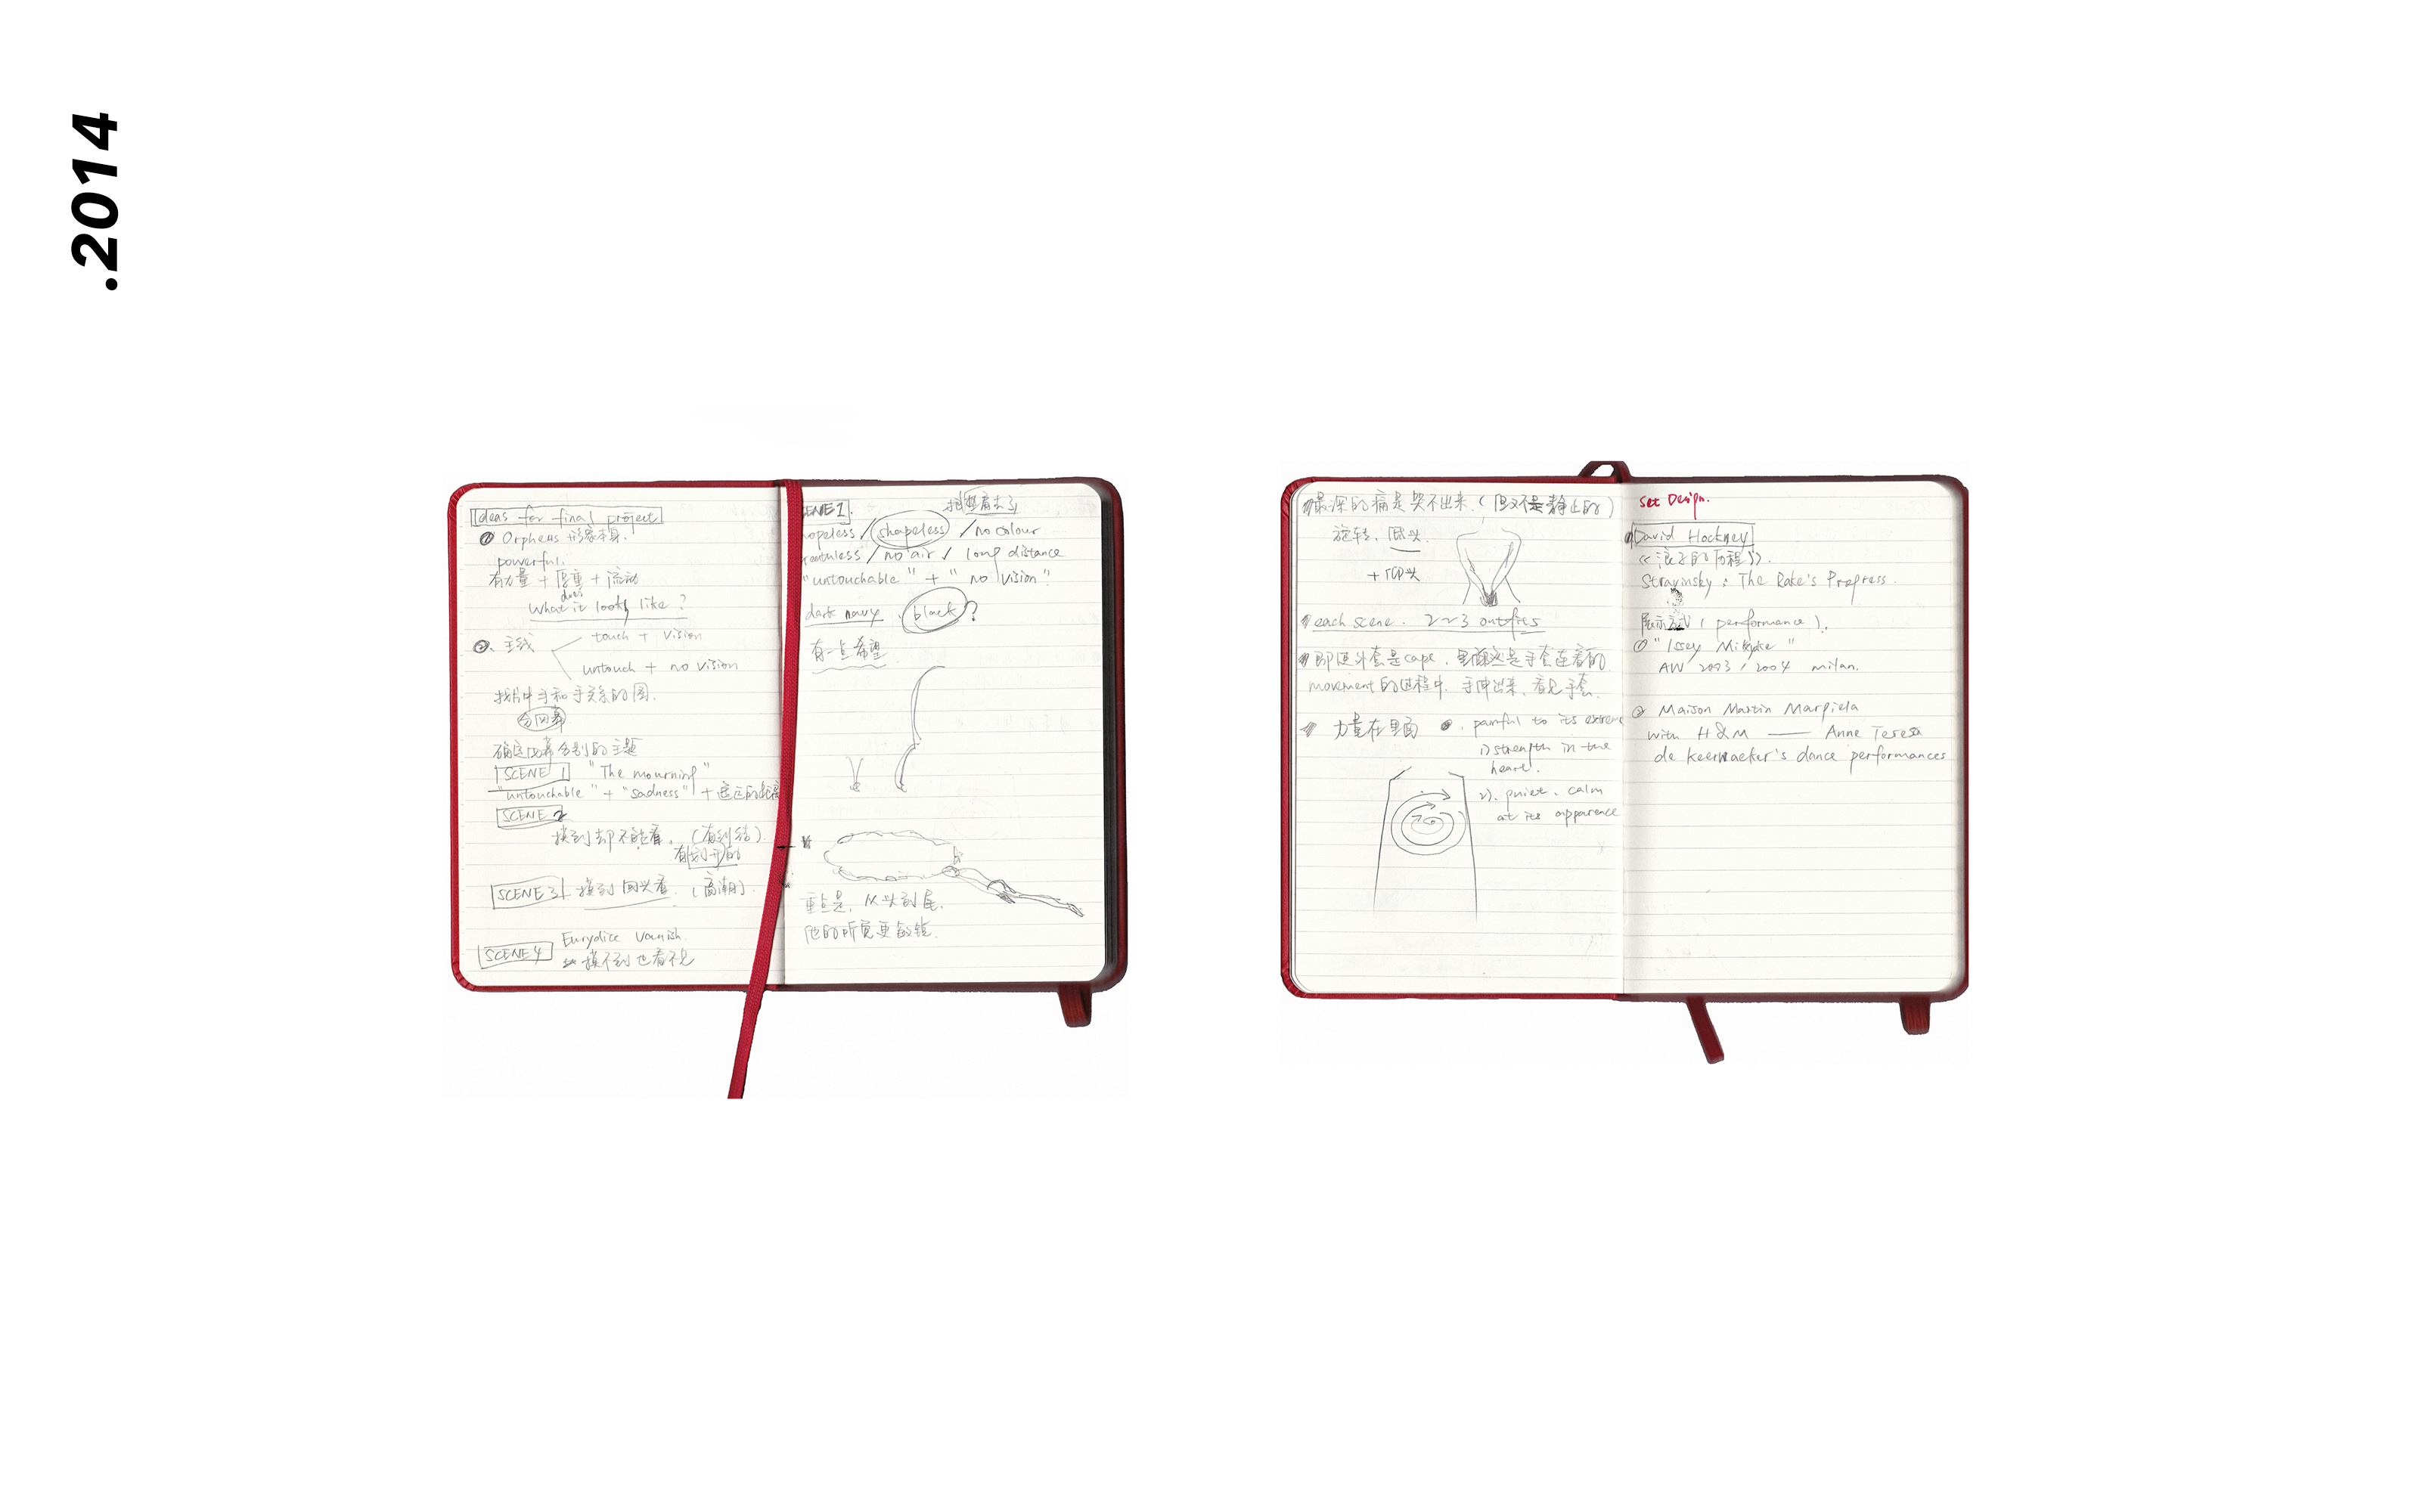 .2014
Ideas for final project
① Orpheus 形象本身.
powerful.
有力量 + 厚重 + 流动
What does it looks like ?
②. 主线
touch + vision
untouch + no vision
找片中手和手关系的图.
分四幕
确定四幕分别的主题
SCENE 1 "The mourning"
"untouchable" + "sadness" + 遥远的距离
SCENE 2
摸到却不能看.
SCENE 3 摸到回头看. (高潮)
SCENE 4 Eurydice vanish.
摸不到也看不见
SCENE 1.
hopeless / shapeless / no colour
/ no air / long distance
"untouchable" + "no vision"?
dark navy , black ?
有一点希望
重点是, 从头到尾.
他的听觉更敏锐.
最深的痛是哭不出来. (但又不是静止的)
旋转. 低头.
+ 仰头
each scene. 2~3 outfits
即便外套是cape. 里面还是手套连着的
movement的过程中. 手伸出来. 看见手套.
力量在里面
painful to its extreme
1) strength in the
heart.
2). quiet. calm
at its apparence
Set Design.
David Hockney
《浪子的历程》.
Stravinsky : The Rake's Progress.
展示方式 ( performance ).
① "Issey Miyake"
AW 2003 / 2004 milan.
② Maison Martin Margiela
with H&M —— Anne Teresa
de keersmaeker's dance performances